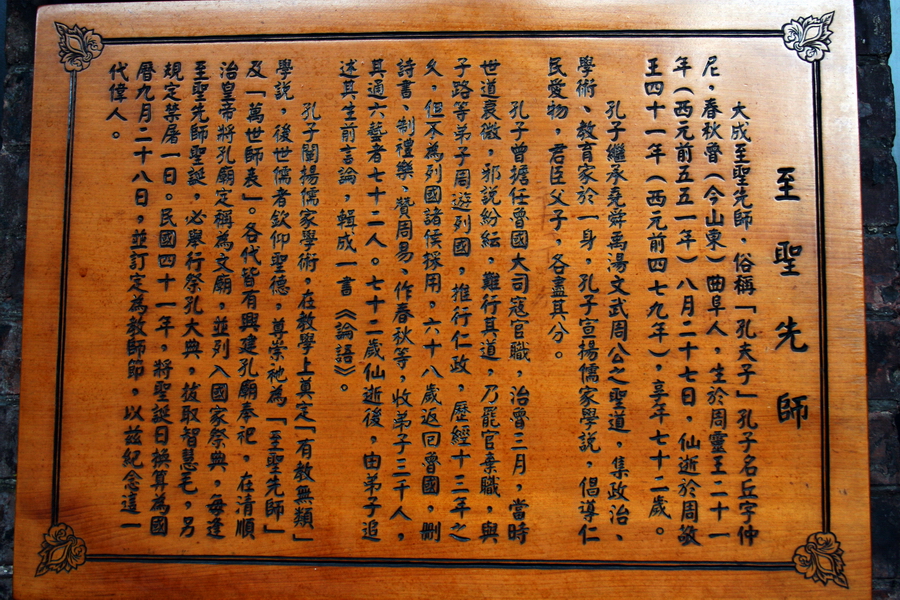 至聖先師
大成至聖先師，俗稱「孔夫子」孔子名丘字仲
尼，春秋魯（今山東）曲阜人，生於周靈王二十一
年（西元前五五一年）八月二十七日，仙逝於周敬
王四十一年（西元前四七九年），享年七十二歲。
孔子繼承堯舜禹湯文武周公之聖道，集政治、
學術、教育家於一身，孔子宣揚儒家學說，倡導仁
民愛物，君臣父子，各盡其分。
孔子曾擔任魯國大司寇官職，治魯三月，當時
世道衰微，邪說紛紜，難行其道，乃罷官棄職，與
子路等弟子周遊列國，推行仁政，歷經十三年之
久，但不為列國諸侯採用，六十八歲返回魯國，刪
詩書、制禮樂、贊周易、作春秋等，收弟子三千人，
其通六藝者七十二人。七十二歲仙逝後，由弟子追
述其生前言論，輯成一書《論語》。
孔子闡揚儒家學術，在教學上奠定「有教無類」
學說，後世儒者欽仰聖德，尊崇祂為「至聖先師」
及「萬世師表」。各代皆有興建孔廟奉祀，在清順
治皇帝將孔廟定稱為文廟，並列入國家祭典，每逢
至聖先師聖誕，必舉行祭孔大典，拔取智慧毛，另
規定禁屠一日。民國四十一年，將聖誕日換算為國
曆九月二十八日，並訂定為教師節，以茲紀念這一
代偉人。